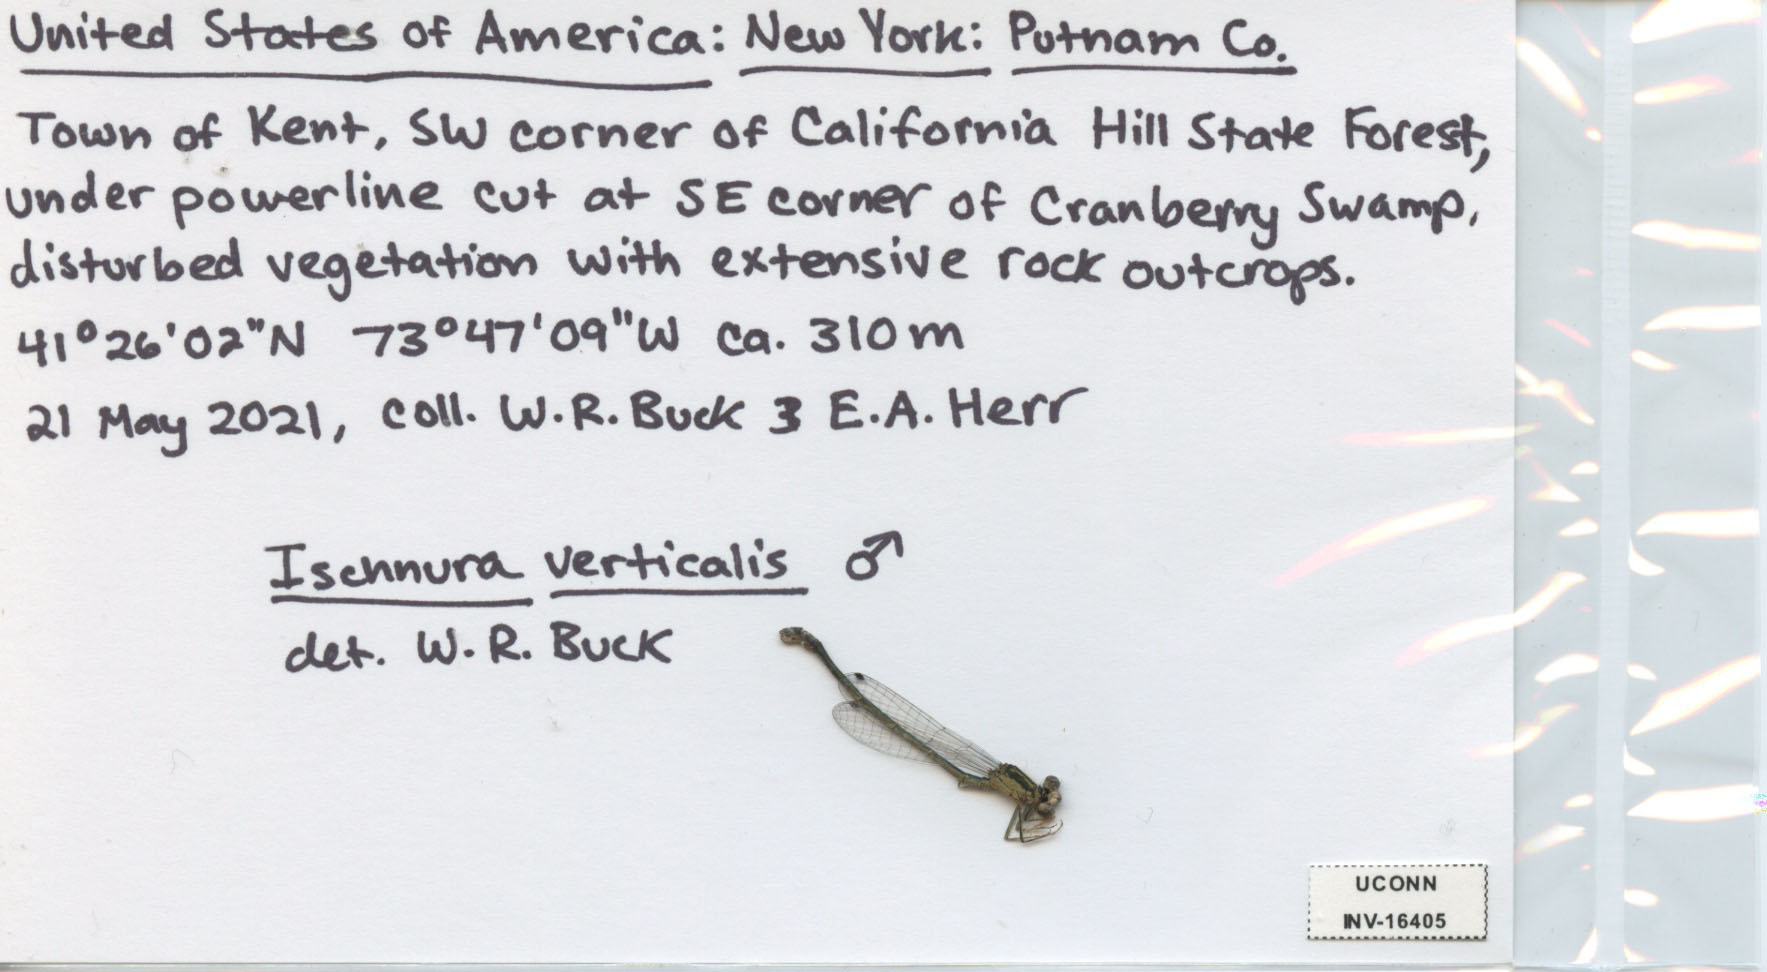 United States of America: New York: Putnam Co.
Town of Kent, SW corner of California Hill State Forest,
under powerline cut at SE corner of Cranberry Swamp,
disturbed vegetation with extensive rock outcrops.
41°26'02"N 73°47'09"W ca. 310 m
21 May 2021, coll. W.R. Buck & E.A. Herr
Ischnura verticalis ♂
det. W.R. Buck
UCONN
INV-16405